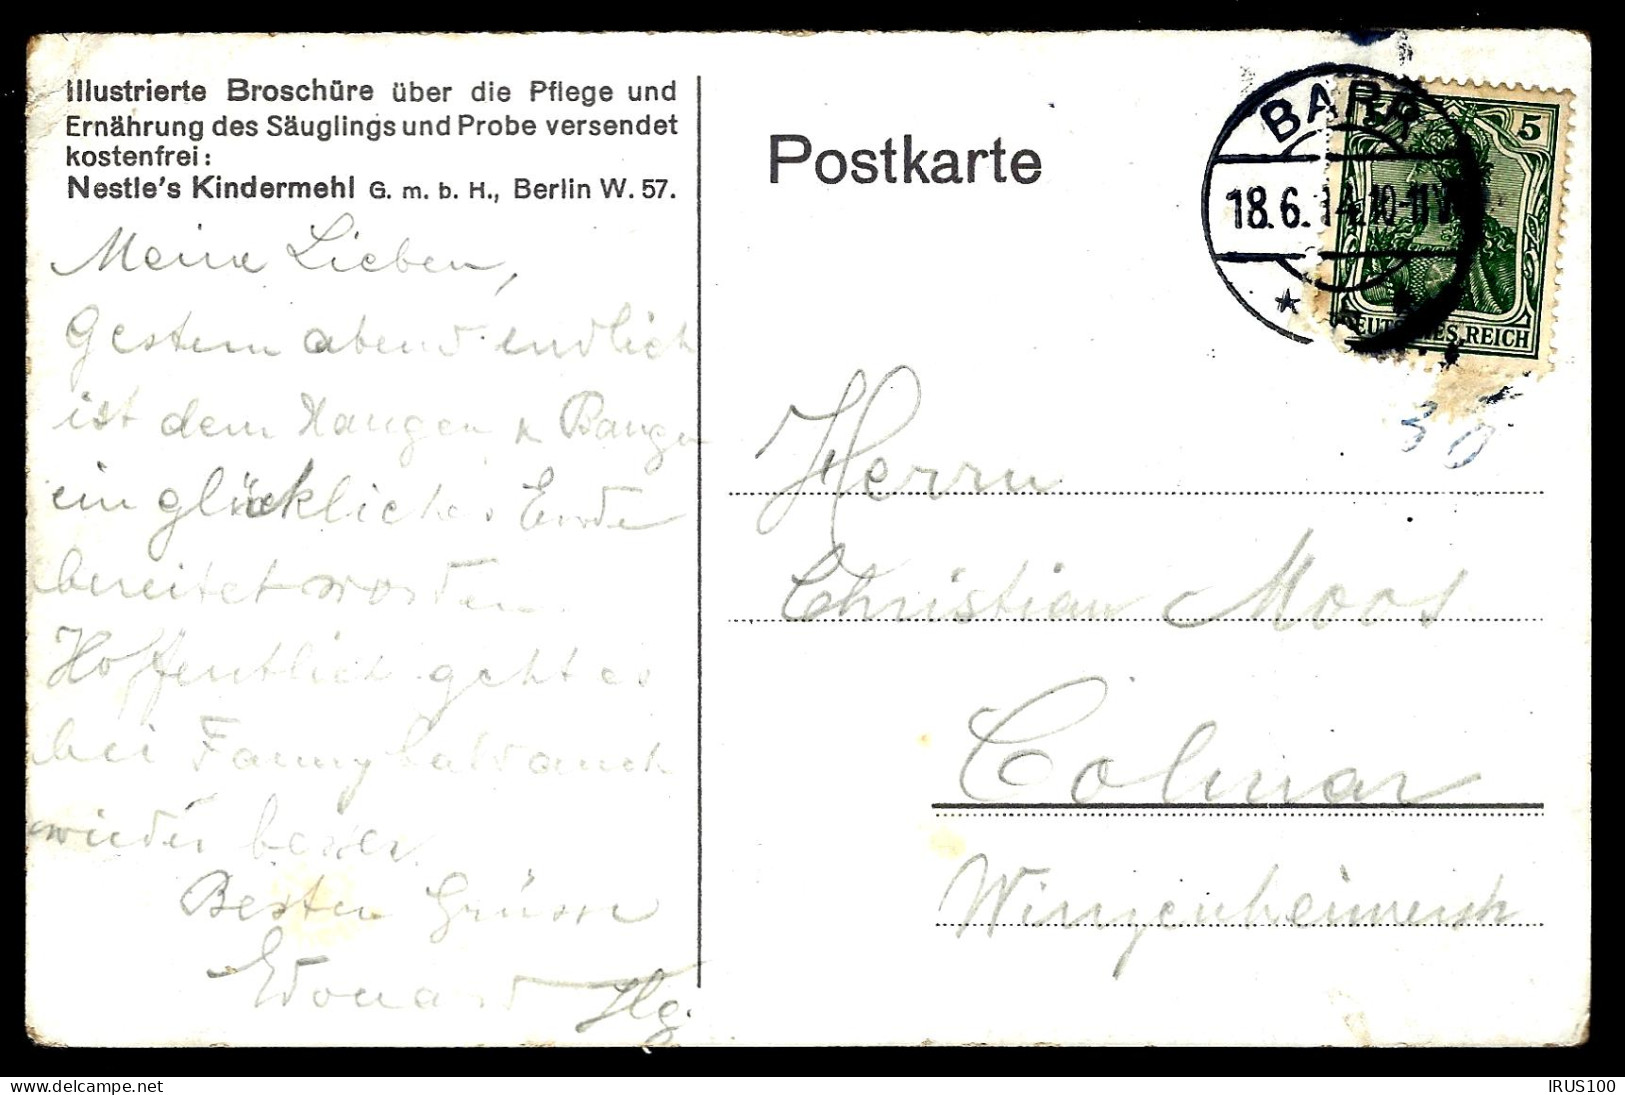 Illustrierte Broschüre über die Pflege und
Ernährung des Säuglings und Probe versendet
kostenfrei:
Nestle's Kindermehl G. m. b. H., Berlin W. 57.
Meine Lieben,
Gestern abend endlich
ist dem Hangen & Bangen
ein glückliches Ende
bereitet worden.
Hoffentlich geht es
bei Fanny bald auch
wieder besser.
Besten Grüsse
Edouard
Postkarte
BARR
18.6.14.10-11V.
5
DEUTSCHES REICH
30
Herrn
Christian Moos
Colmar
IRUS100